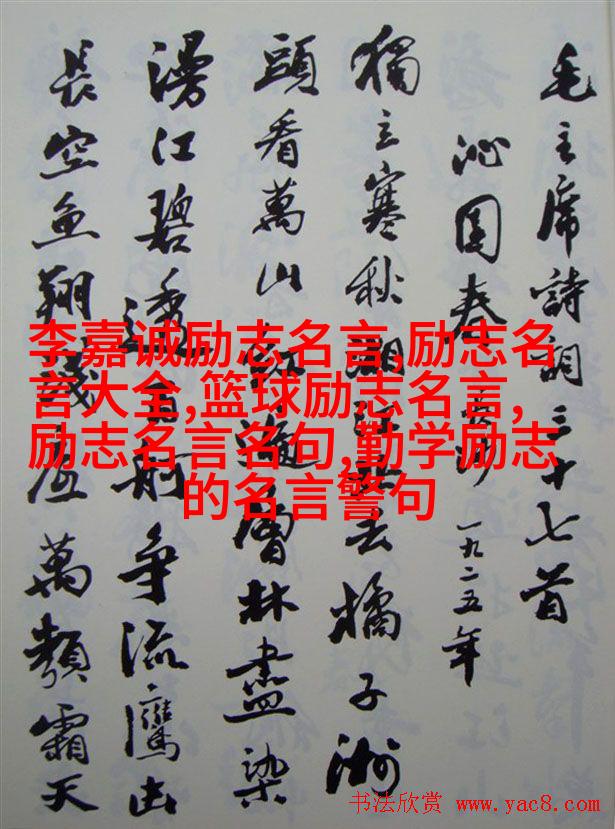 毛主席詩詞三十七首
沁園春 長沙 一九二五年
獨立寒秋湘江北去橘子洲
頭看萬山紅遍層林盡染
漫江碧透百舸争流鷹击
長空魚翔浅底萬類霜天
李嘉诚励志名言,励志名
言大全,篮球励志名言,
励志名言名句,勤学励志
的名言警句
书法欣赏 www.yac8.com